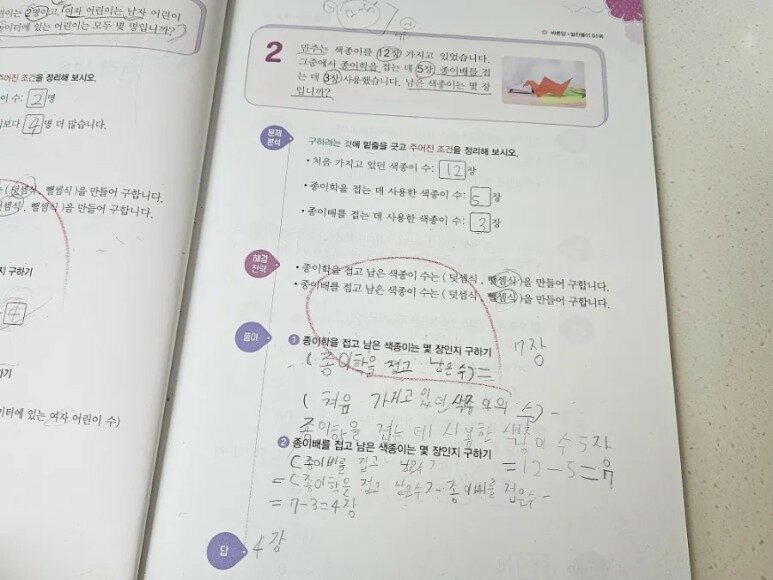 은 2명이고, 여자 어린이는 남자 어린이
이터에 있는 어린이는 모두 몇 명입니까?
주어진 조건을 정리해 보시오.
이 수: 2 명
보다 4 명 더 많습니다.
는 (덧셈식, 뺄셈식)을 만들어 구합니다.
덧셈식, 뺄셈식)을 만들어 구합니다.
지 구하기
4
하기
이터에 있는 여자 어린이 수)
바른답·알찬풀이
2
민주는 색종이를 12장 가지고 있었습니다.
그중에서 종이학을 접는 데 5장, 종이배를 접
는 데 3장 사용했습니다. 남은 색종이는 몇 장
입니까?
문제
분석
구하려는 것에 밑줄을 긋고 주어진 조건을 정리해 보시오.
• 처음 가지고 있던 색종이 수: 12 장
• 종이학을 접는 데 사용한 색종이 수: 5 장
• 종이배를 접는 데 사용한 색종이 수: 3 장
해결
전략
• 종이학을 접고 남은 색종이 수는 (덧셈식, 뺄셈식)을 만들어 구합니다.
• 종이배를 접고 남은 색종이 수는 (덧셈식, 뺄셈식)을 만들어 구합니다.
풀이
1 종이학을 접고 남은 색종이는 몇 장인지 구하기
7장
(종이학을 접고 남은수)=
(처음 가지고 있던 색종이의 수)-
종이학을 접는데 사용한 색종이수 5장
2 종이배를 접고 남은 색종이는 몇 장인지 구하기
=12-5=7
(종이배를 접고 남은수)
=(종이학을 접고 남은수)-종이배를 접은수
=7-3=4장
답
4장